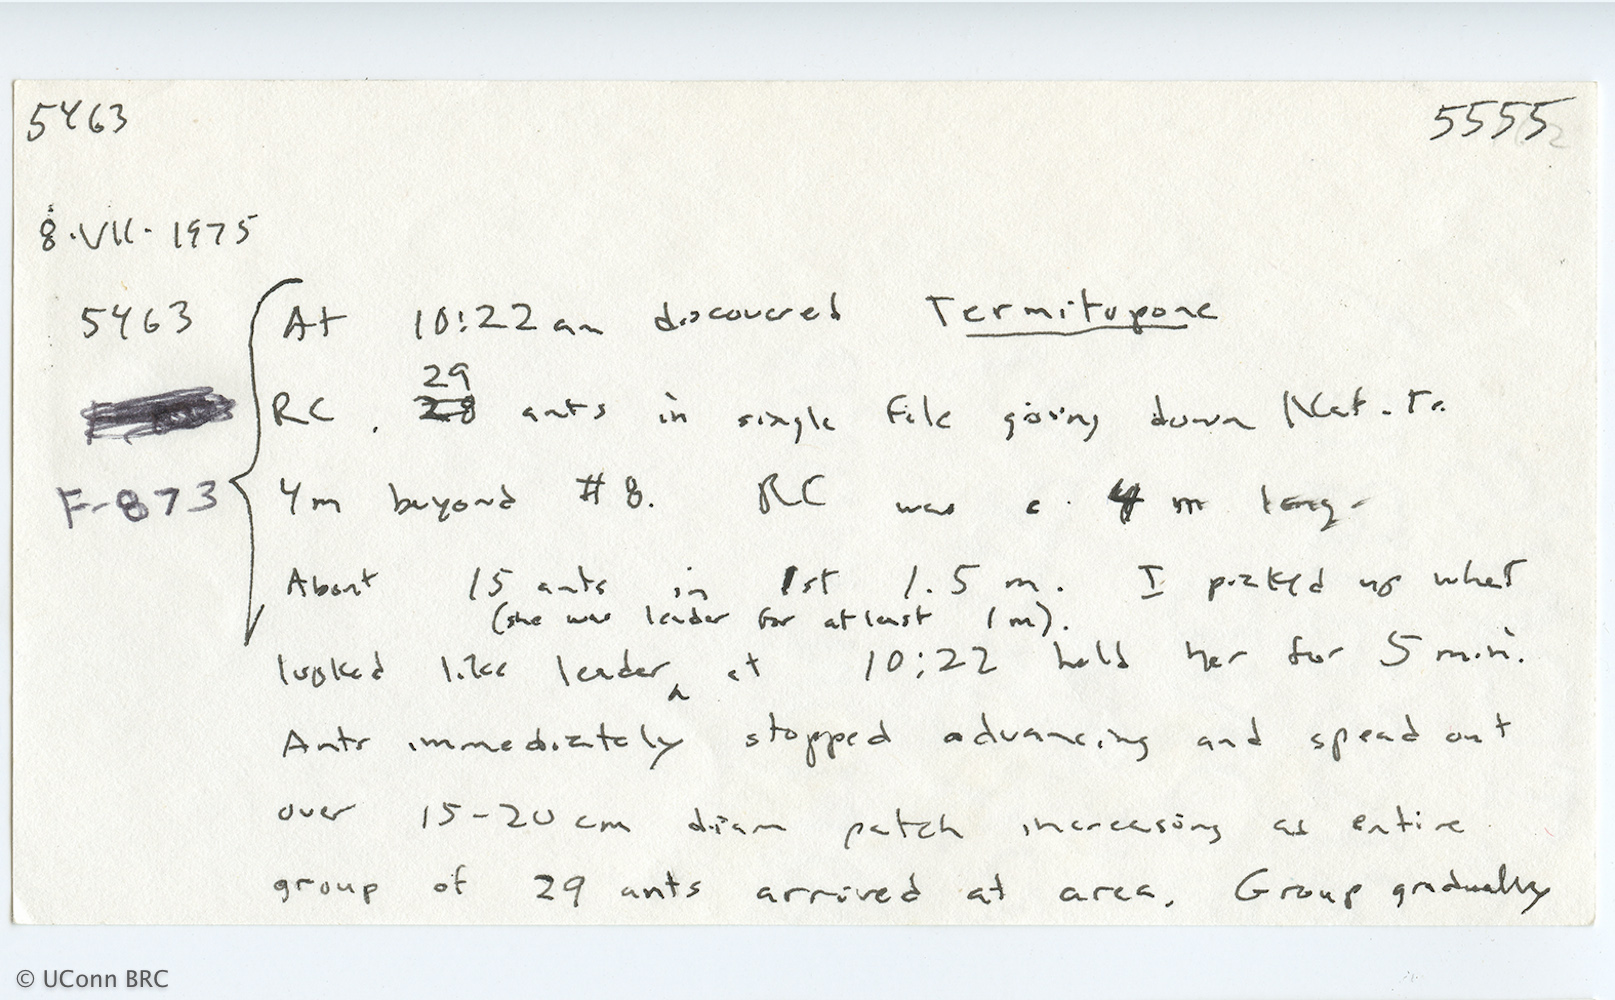 5463 5555
8.VII.1975
5463 At 10:22 am discovered Termitopone
29
RC, 28 ants in single file going down Nat. Tr.
F-873 4m beyond #8. RC was c. 4 m long.
About 15 ants in 1st 1.5 m. I picked up what
(she was leader for at least 1 m).
looked like leader ^ at 10:22 held her for 5 min.
Ants immediately stopped advancing and spead out
over 15-20 cm diam patch increasing as entire
group of 29 ants arrived at area. Group gradually
© UConn BRC